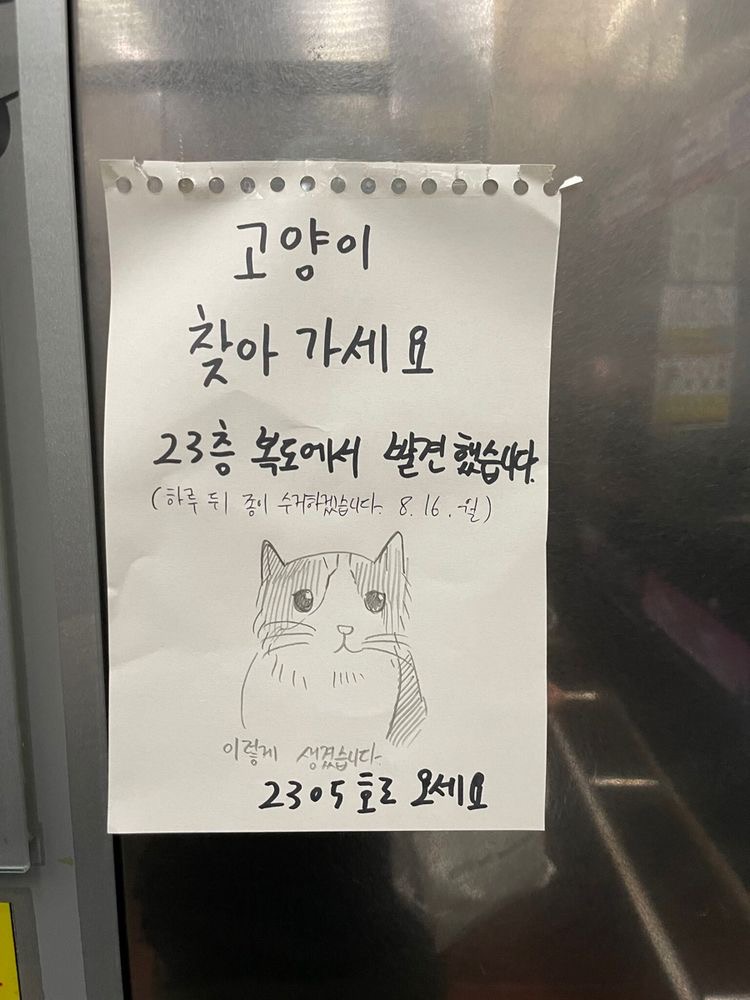 고양이
찾아 가세요
23층 복도에서 발견했습니다.
(하루 뒤 종이 수거하겠습니다. 8. 16. 월)
이렇게 생겼습니다.
2305호로 오세요